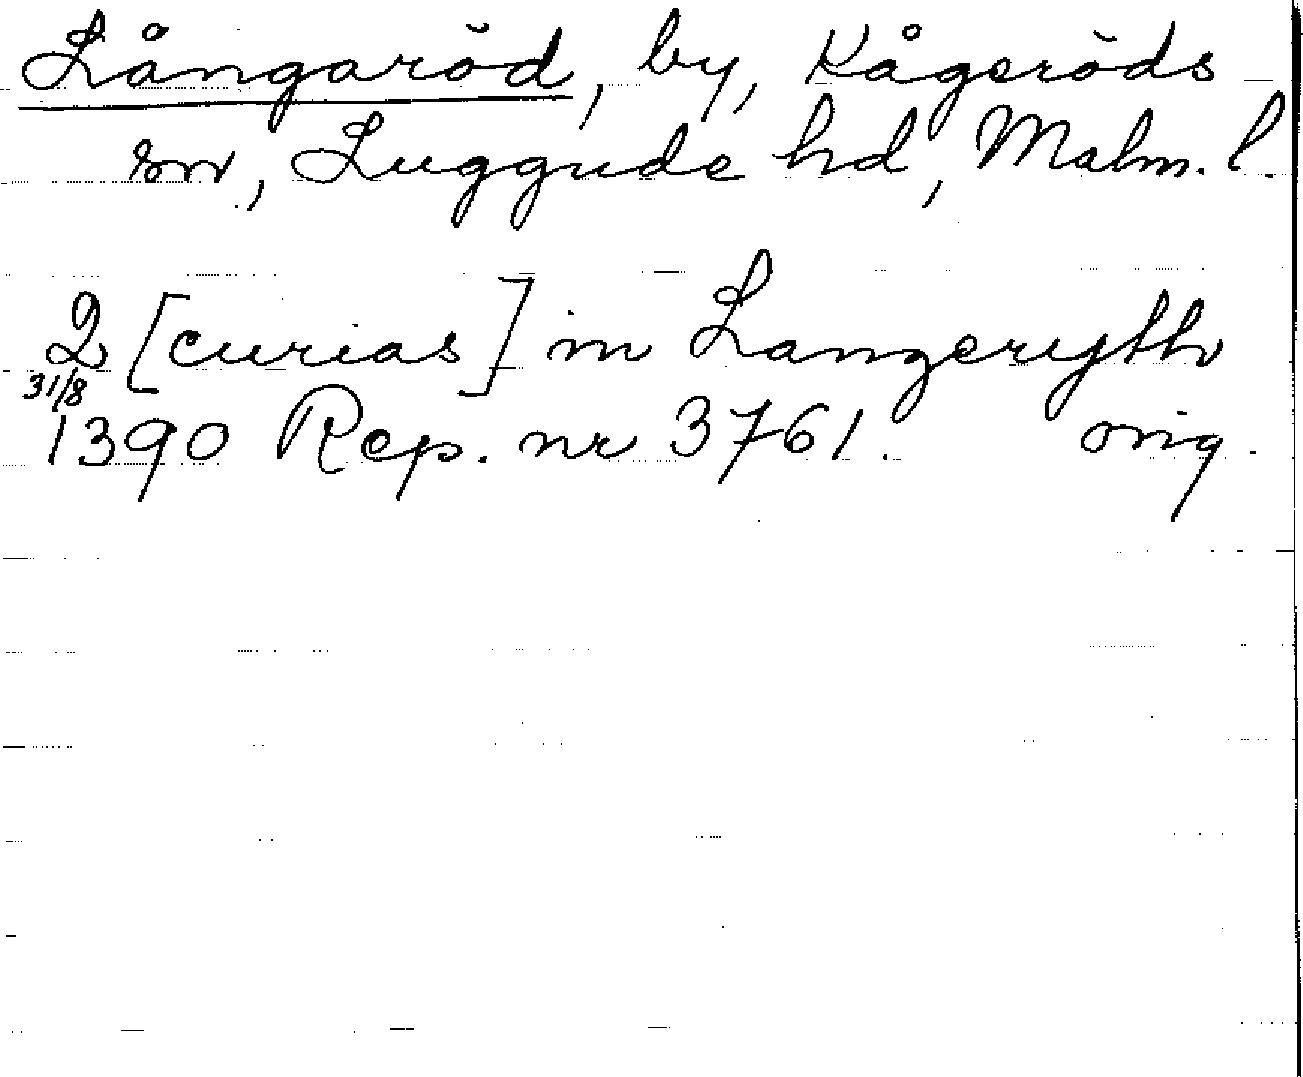 Långaröd, by, Kågeröds
sn, Luggude hd, Malm. l.
2 [curias] in Langerythv
31/8
1390 Rep. nr 3761. orig.